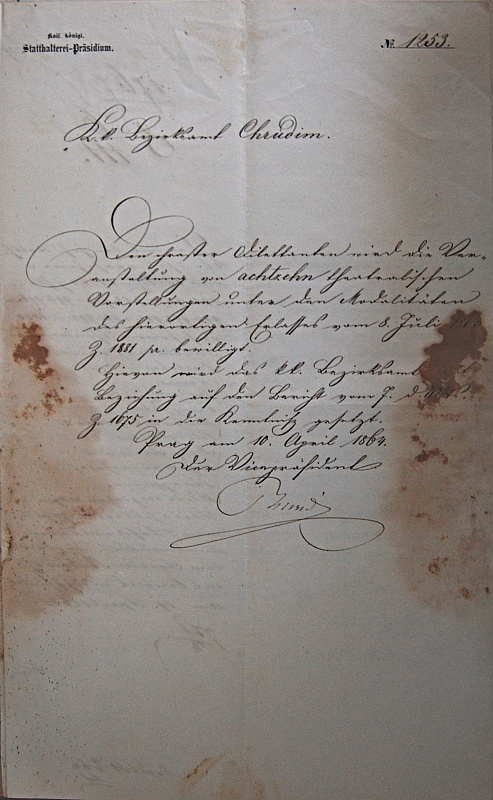 Kais. königl.
Statthalterei-Präsidium.
№ 1253.
K. k. Bezirksamt Chrudim.
Den Dilettanten wird die Ver-
anstaltung von achtzehn theatralischen
Vorstellungen unter den Modalitäten
des hierortigen Erlasses vom 8. Juli
Z. 1881 pr. bewilligt.
Hievon wird das k. k. Bezirksamt
Beziehung auf den Bericht vom 7. d.
Z. 1675 in die Kenntniß gesetzt.
Prag am 10. April 1864.
Der Vicepräsident